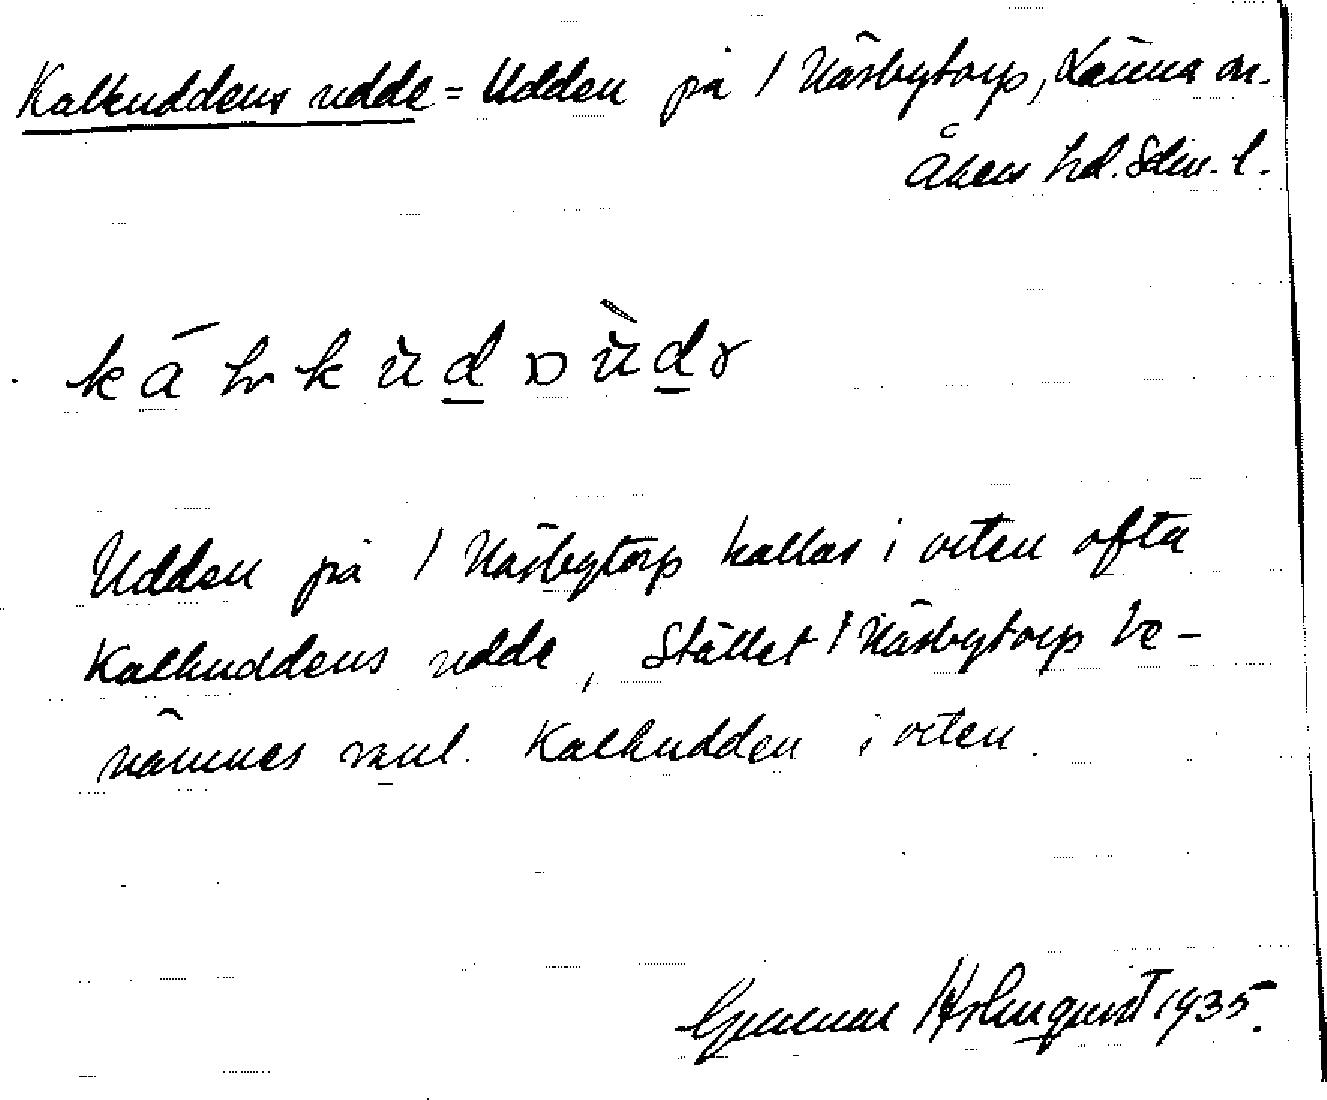 Kalkuddens udde = Udden på / Näsbytorp, Länna sn.
Åkers hd. Sdm. l.
Udden på / Näsbytorp kallas i orten ofta
Kalkuddens udde, Stället / Näsbytorp be-
nämnes vanl. Kalkudden i orten.
Gunnar Holmquist 1935.